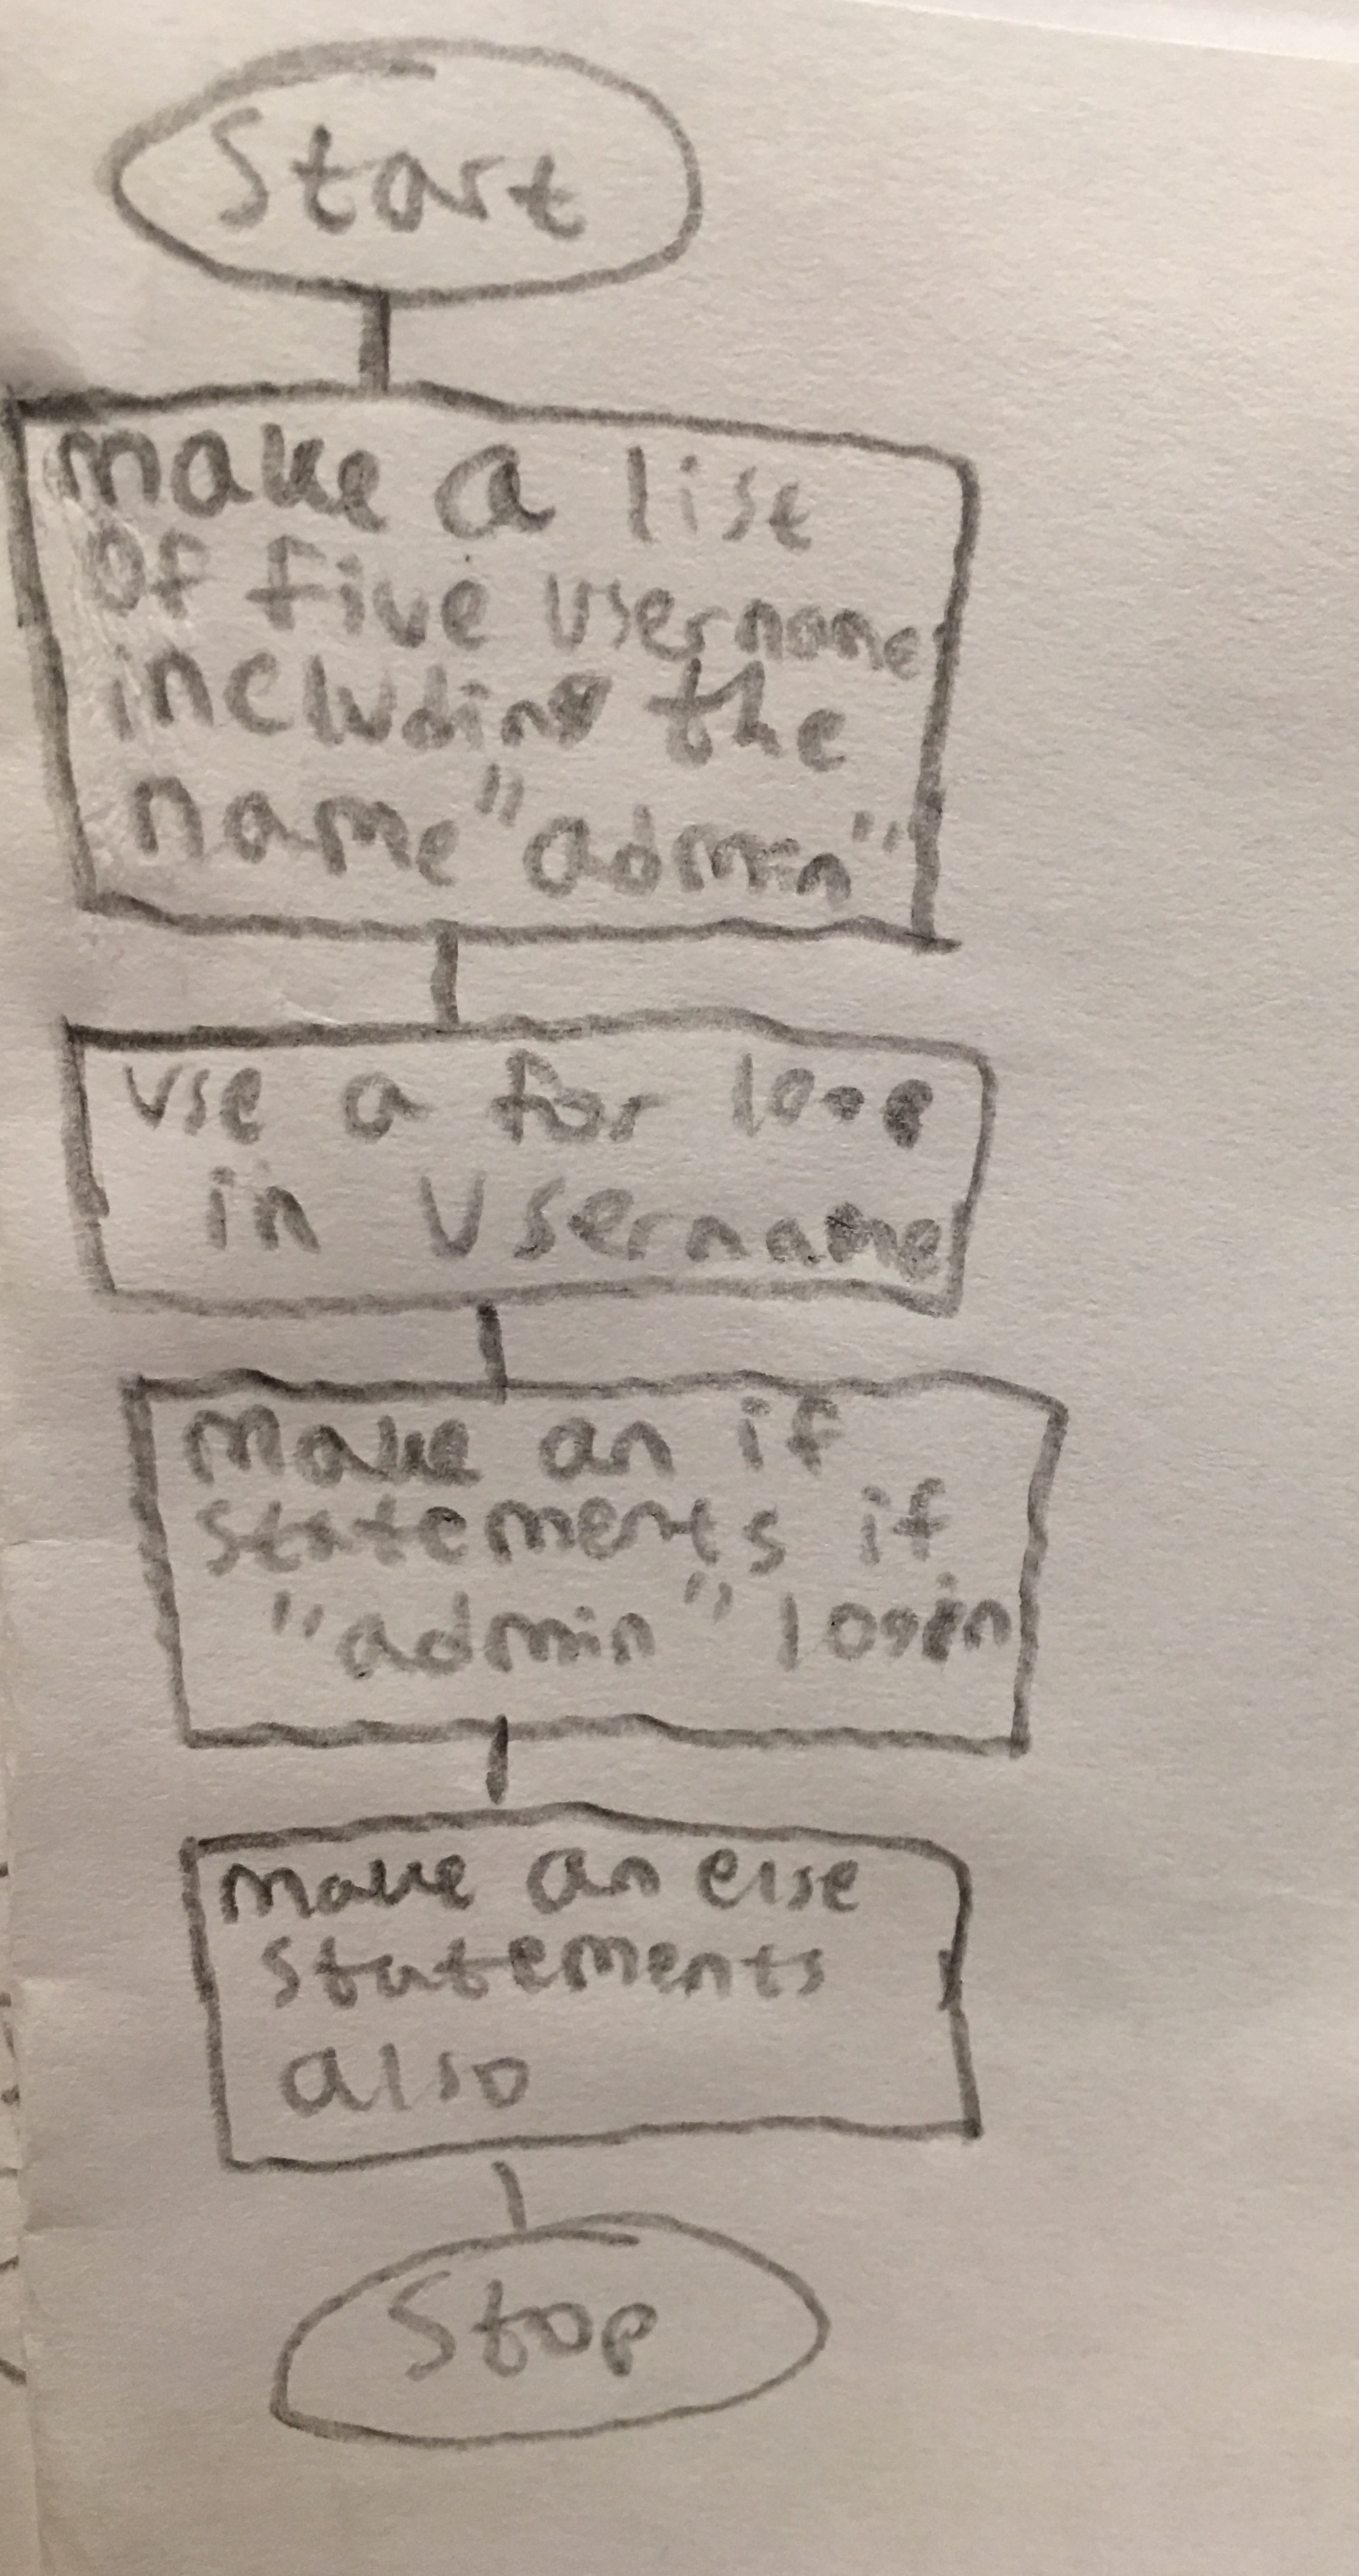 Start
make a list
of five username
including the
name "admin"
use a for loop
in username
make an if
statements if
"admin" login
make an else
statements
also
Stop